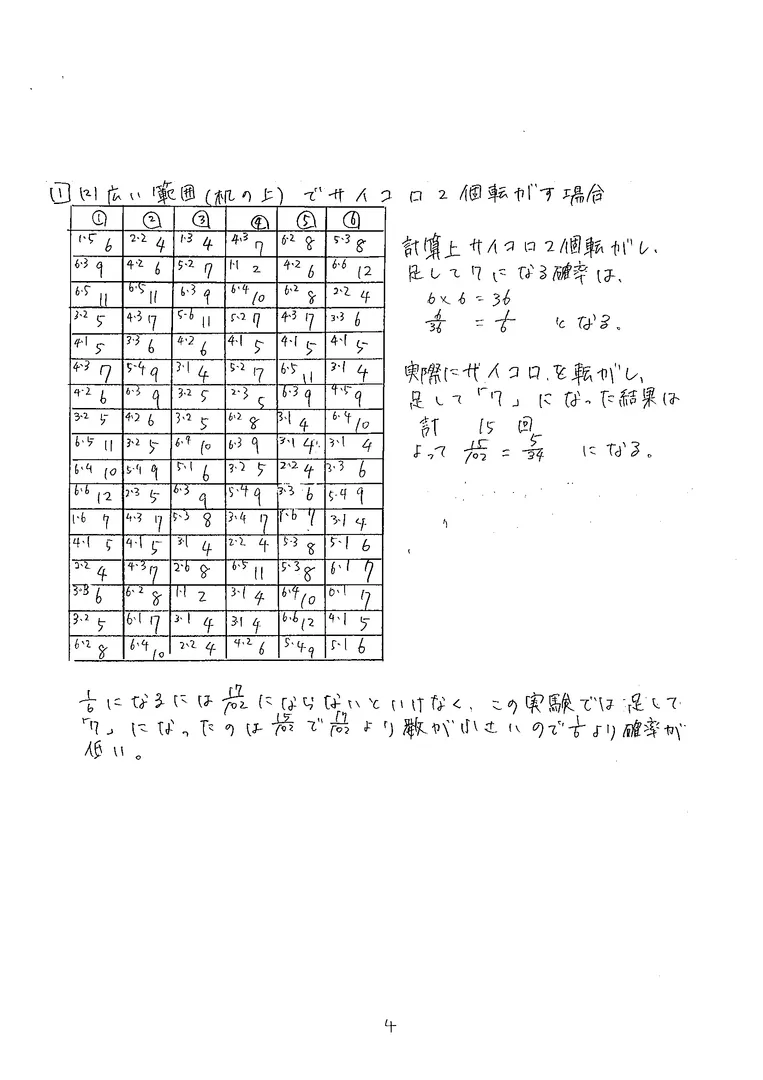 1 (2) 広い範囲(机の上)でサイコロ2個転がす場合
① ② ③ ④ ⑤ ⑥
1・5 6 2・2 4 1・3 4 4・3 7 6・2 8 5・3 8
6・3 9 4・2 6 5・2 7 1・1 2 4・2 6 6・6 12
6・5 11 6・5 11 6・3 9 6・4 10 6・2 8 2・2 4
3・2 5 4・3 7 5・6 11 5・2 7 4・3 7 3・3 6
4・1 5 3・3 6 4・2 6 4・1 5 4・1 5 4・1 5
4・3 7 5・4 9 3・1 4 5・2 7 6・5 11 3・1 4
4・2 6 6・3 9 3・2 5 2・3 5 6・3 9 4・5 9
3・2 5 4・2 6 3・2 5 6・2 8 3・1 4 6・4 10
6・5 11 3・2 5 6・4 10 6・3 9 3・1 4 3・1 4
6・4 10 5・4 9 5・1 6 3・2 5 2・2 4 3・3 6
6・6 12 2・3 5 6・3 9 5・4 9 3・3 6 5・4 9
1・6 7 4・3 7 5・3 8 3・4 7 1・6 7 3・1 4
4・1 5 4・1 5 3・1 4 2・2 4 5・3 8 5・1 6
2・2 4 4・3 7 2・6 8 6・5 11 5・3 8 6・1 7
3・3 6 6・2 8 1・1 2 3・1 4 6・4 10 7
3・2 5 6・1 7 3・1 4 3・1 4 6・6 12 4・1 5
6・2 8 6・4 10 2・2 4 4・2 6 5・4 9 5・1 6
計算上サイコロ2個転がし、
足して7になる確率は、
6×6=36
6/36 = 1/6 となる。
実際にサイコロを転がし、
足して「7」になった結果は
計 15 回
よって 15/102 = 5/34 になる。
1/6になるには17/102にならないといけなく、この実験では足して
「7」になったのは15/102で17/102より数が小さいので1/6より確率が
低い。
4